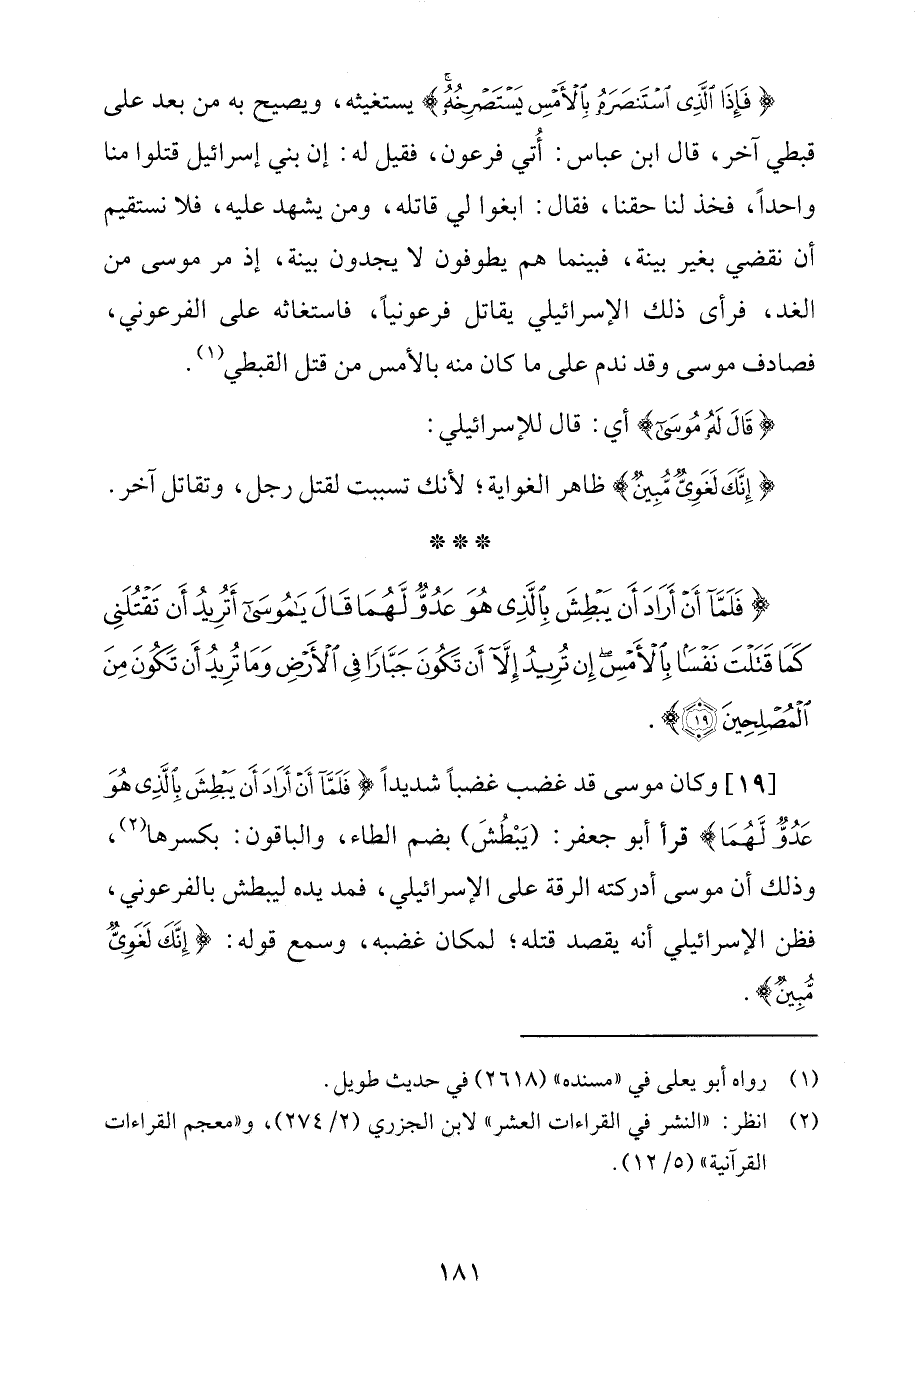 ﴿ فَإِذَا ٱلَّذِى ٱسْتَنصَرَهُۥ بِٱلْأَمْسِ يَسْتَصْرِخُهُۥۚ ﴾ يستغيثه، ويصيح به من بعد على
قبطي آخر، قال ابن عباس: أُتي فرعون، فقيل له: إن بني إسرائيل قتلوا منا
واحداً، فخذ لنا حقنا، فقال: ابغوا لي قاتله، ومن يشهد عليه، فلا نستقيم
أن نقضي بغير بينة، فبينما هم يطوفون لا يجدون بينة، إذ مر موسى من
الغد، فرأى ذلك الإسرائيلي يقاتل فرعونياً، فاستغاثه على الفرعوني،
فصادف موسى وقد ندم على ما كان منه بالأمس من قتل القبطي(١).
﴿ قَالَ لَهُۥ مُوسَىٰٓ ﴾ أي: قال للإسرائيلي:
﴿ إِنَّكَ لَغَوِىٌّ مُّبِينٌ ﴾ ظاهر الغواية؛ لأنك تسببت لقتل رجل، وتقاتل آخر.
* * *
﴿ فَلَمَّآ أَنْ أَرَادَ أَن يَبْطِشَ بِٱلَّذِى هُوَ عَدُوٌّ لَّهُمَا قَالَ يَٰمُوسَىٰٓ أَتُرِيدُ أَن تَقْتُلَنِى
كَمَا قَتَلْتَ نَفْسًۢا بِٱلْأَمْسِ ۖ إِن تُرِيدُ إِلَّآ أَن تَكُونَ جَبَّارًا فِى ٱلْأَرْضِ وَمَا تُرِيدُ أَن تَكُونَ مِنَ
ٱلْمُصْلِحِينَ ١٩ ﴾.
[١٩] وكان موسى قد غضب غضباً شديداً ﴿ فَلَمَّآ أَنْ أَرَادَ أَن يَبْطِشَ بِٱلَّذِى هُوَ
عَدُوٌّ لَّهُمَا ﴾ قرأ أبو جعفر: (يَبْطُشَ) بضم الطاء، والباقون: بكسرها(٢)،
وذلك أن موسى أدركته الرقة على الإسرائيلي، فمد يده ليبطش بالفرعوني،
فظن الإسرائيلي أنه يقصد قتله؛ لمكان غضبه، وسمع قوله: ﴿ إِنَّكَ لَغَوِىٌّ
مُّبِينٌ ﴾.
(١) رواه أبو يعلى في «مسنده» (٢٦١٨) في حديث طويل.
(٢) انظر: «النشر في القراءات العشر» لابن الجزري (٢/ ٢٧٤)، و«معجم القراءات
القرآنية» (٥/ ١٢).
١٨١